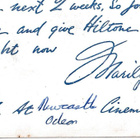 next 2 weeks, So fo
and give Hilton
ght now
Marily
At Newcastle Cinema
Odeon